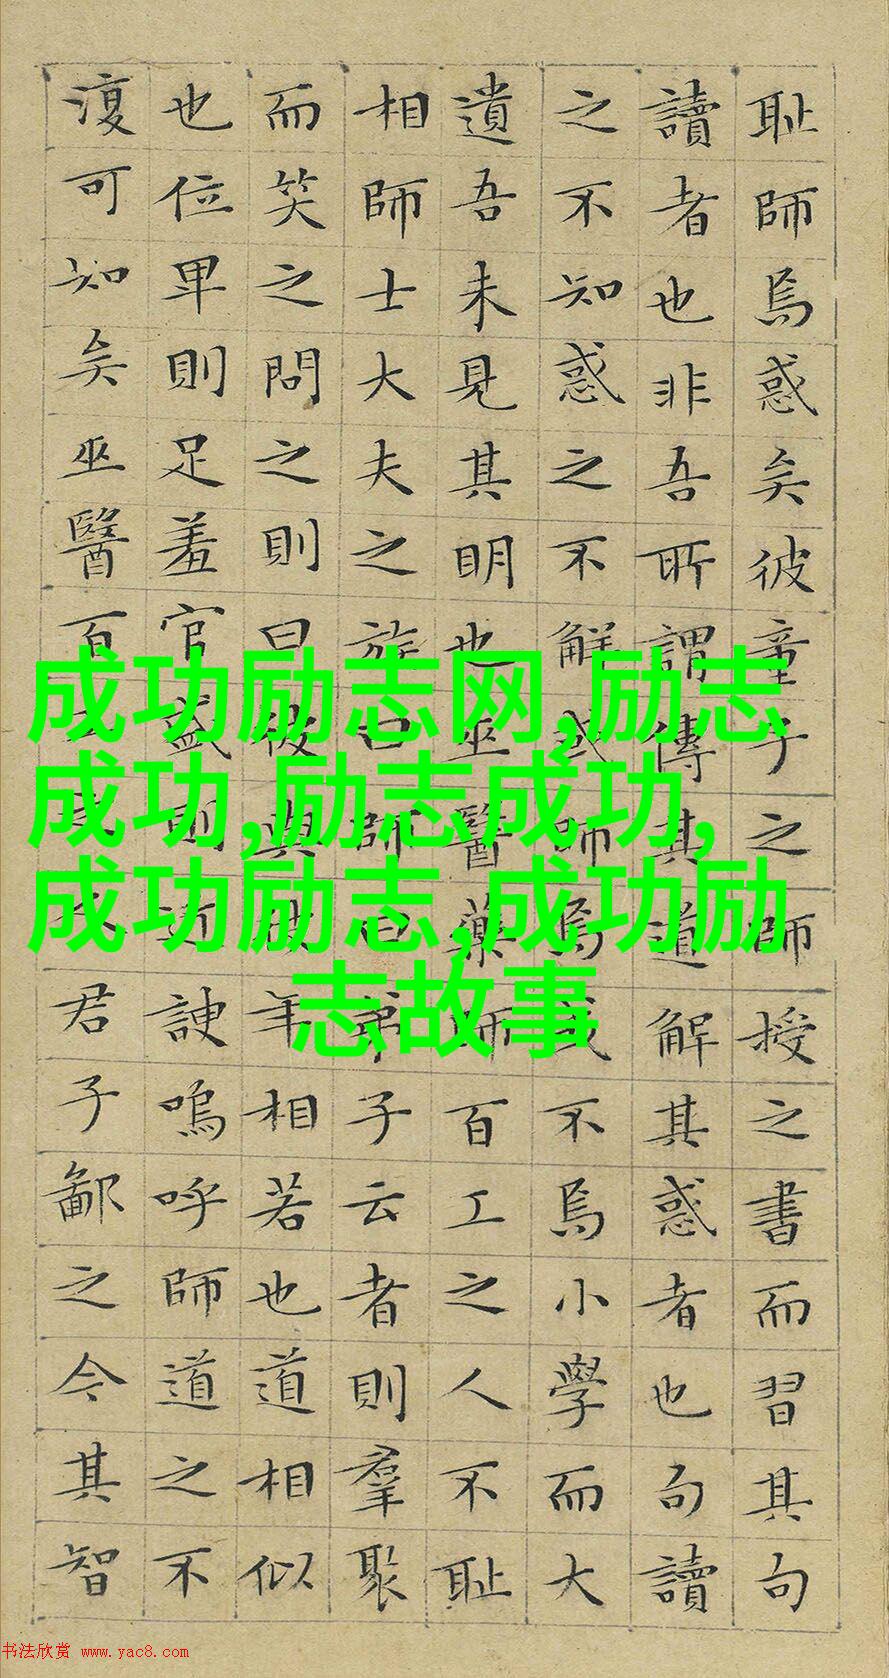 耻師焉惑矣彼童子之師授之書而習其句
讀者也非吾所謂傳其道解其惑者也句讀
之不知惑之不解或師焉或不焉小學而大
遺吾未見其明也巫醫藥師百工之人不耻
相師士大夫之族曰師曰弟子云者則羣聚
而笑之問之則曰彼與彼年相若也道相似
也位卑則足羞官盛則近諛嗚呼師道之不
復可知矣巫醫百君子鄙之今其智
成功励志网,励志
成功,励志成功,
成功励志,成功励
志故事
书法欣赏 www.yac8.com